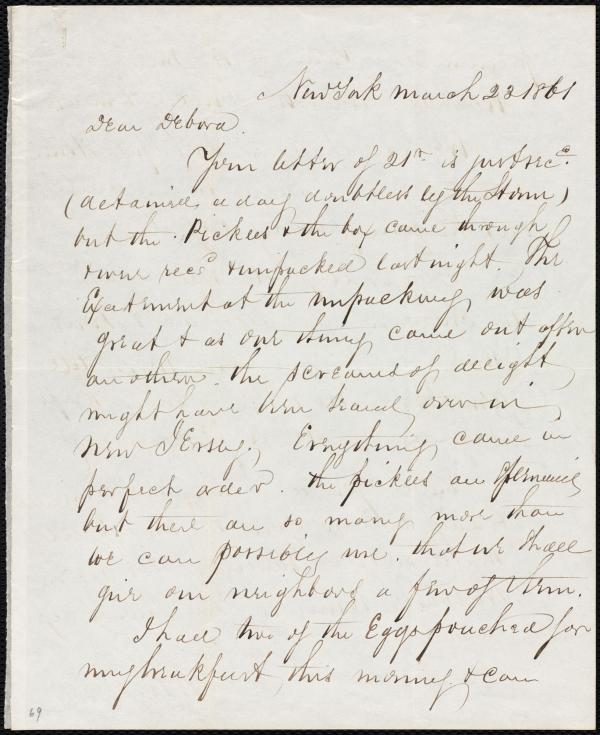 New York March 23 1861
Dear Debora.
Your letter of 21st is just recd.
(detained a day doubtless by the Storm)
but the Pickles & the box came through
& were recd & unpacked last night. The
Excitement at the unpacking was
great & as one thing came out after
another. the screams of delight
might have been heard over in
New JErsey. Everything came in
perfect order. the pickles are Splendid
but there are so many more than
we can possibly use. that we Shall
give our neighbors a few of them.
I had two of the Eggs pouched for
my breakfast this morning & can
69